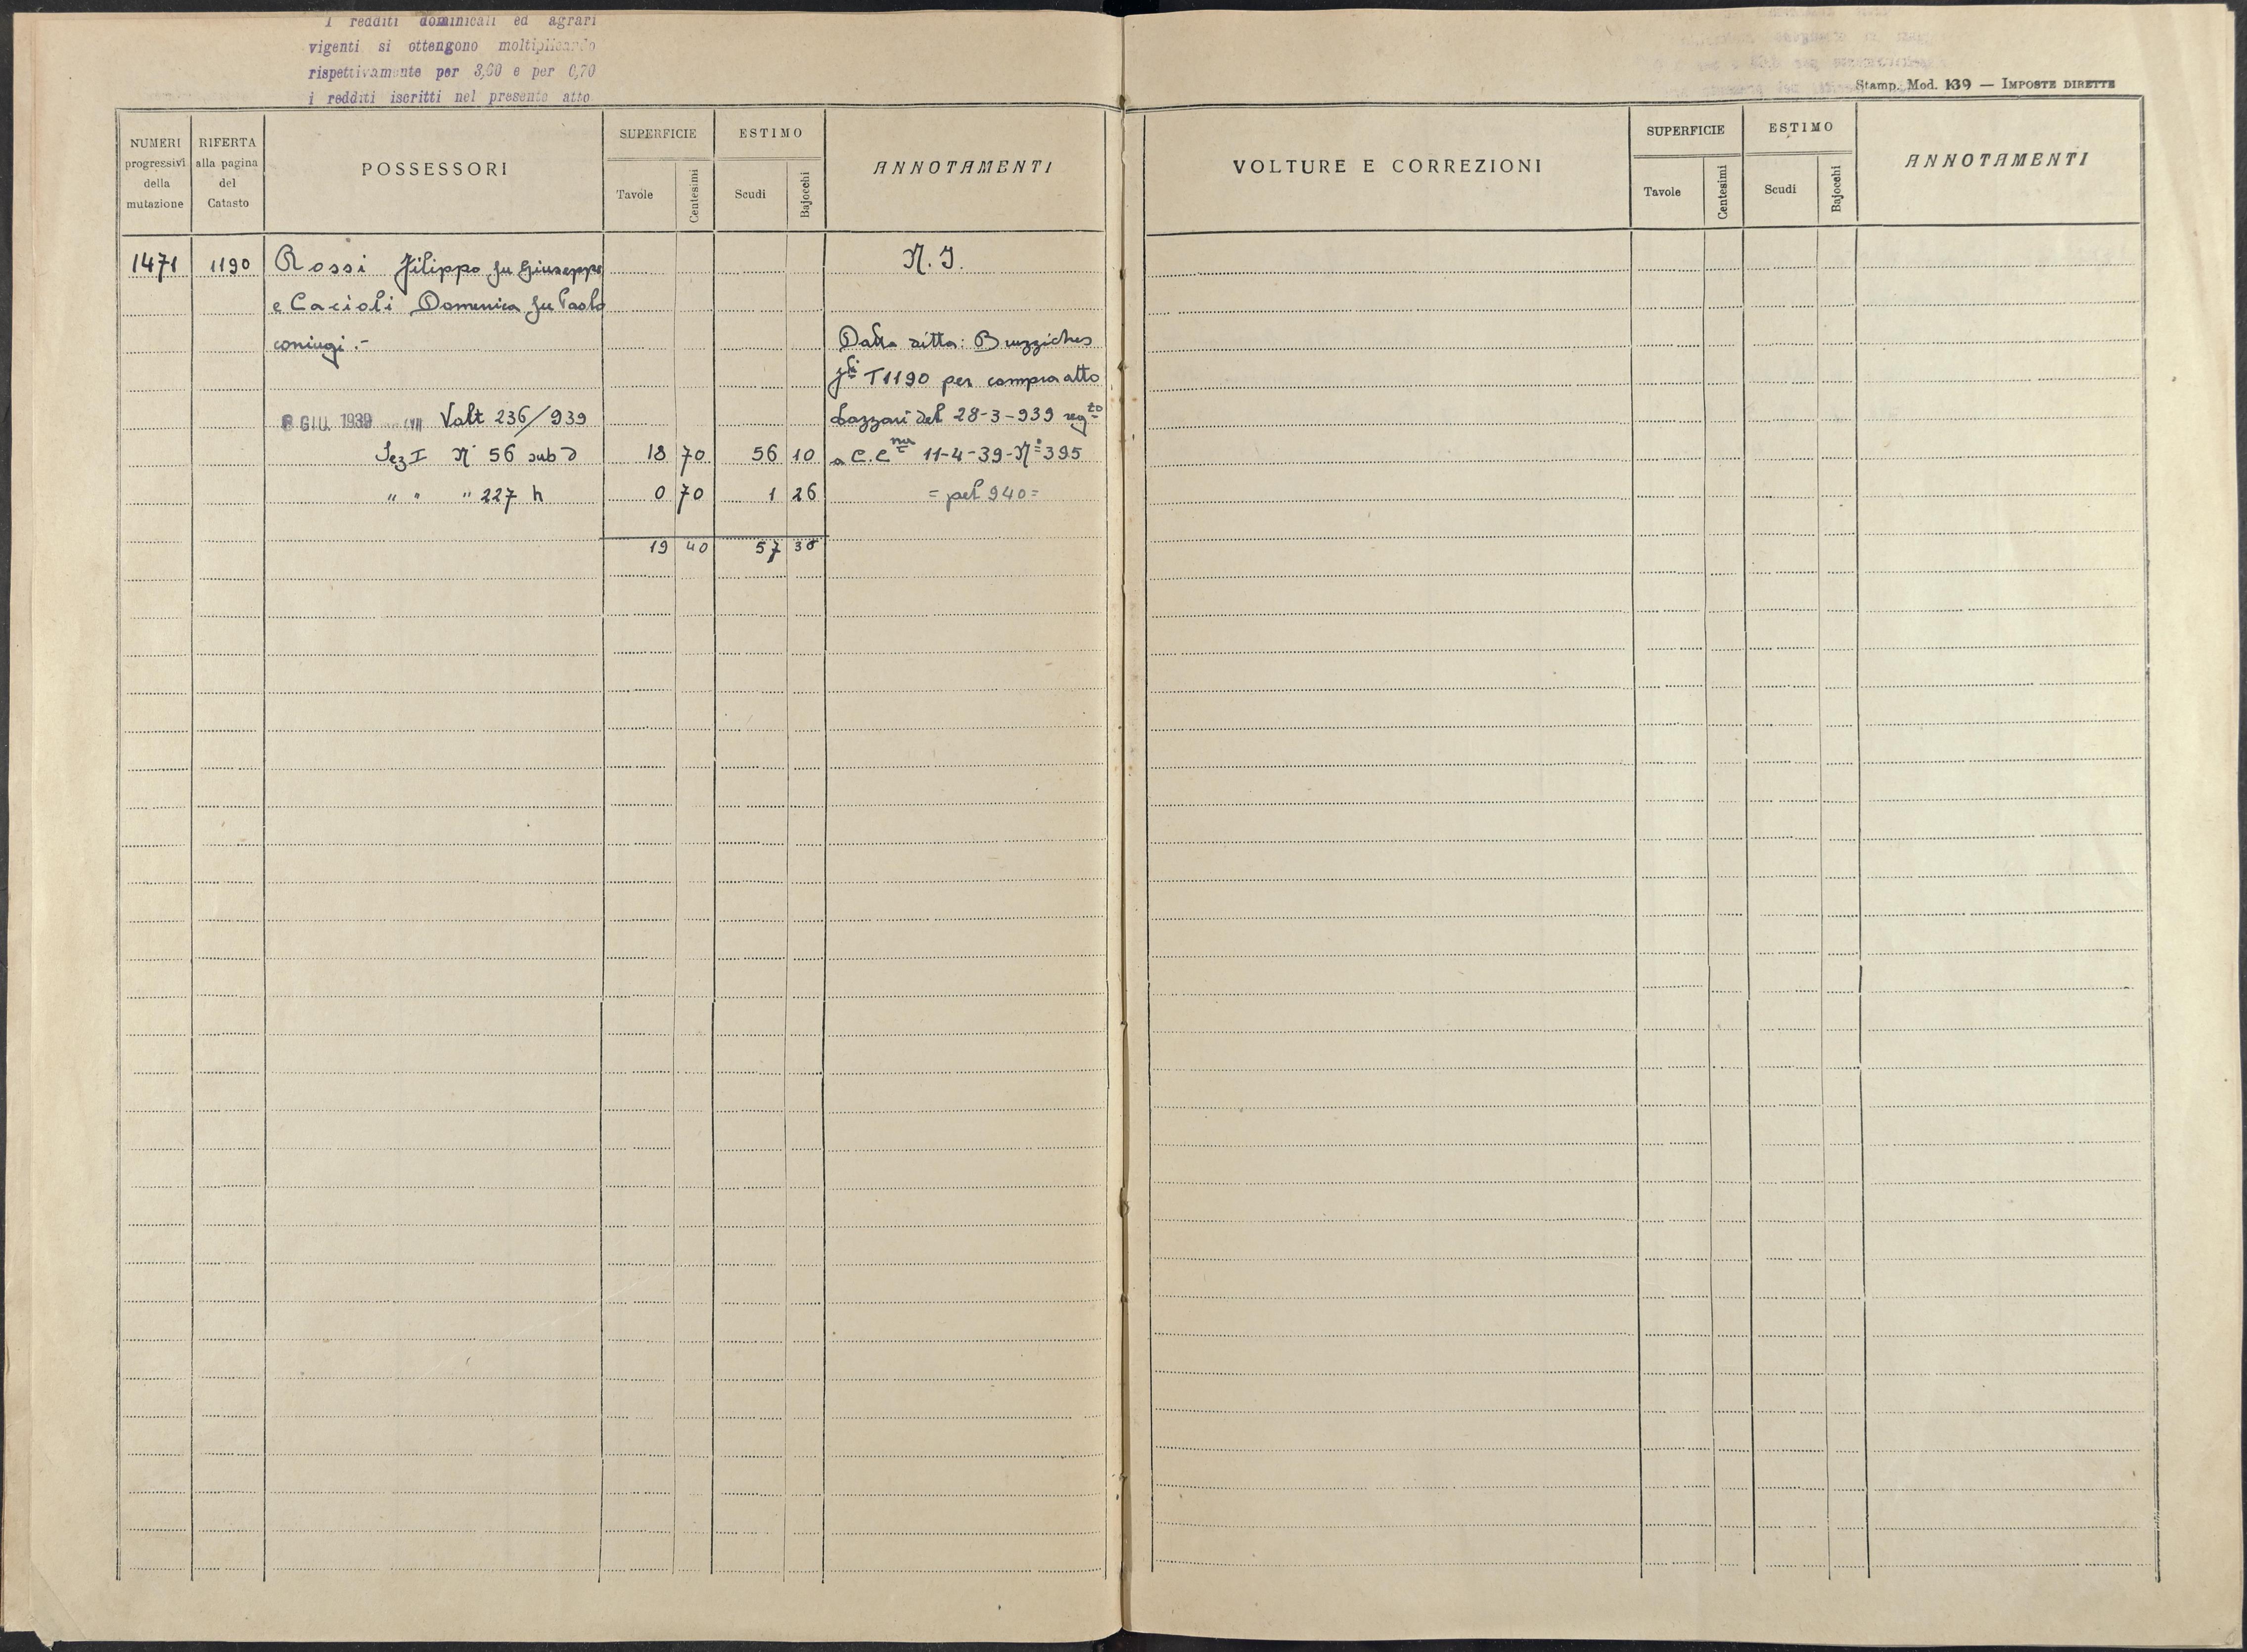 I redditi dominicali ed agrari
vigenti si ottengono moltiplicando
rispettivamente per 3,60 e per 0,70
i redditi iscritti nel presente atto
Stamp. Mod. 139 — IMPOSTE DIRETTE
NUMERI progressivi della mutazione
RIFERTA alla pagina del Catasto
POSSESSORI
SUPERFICIE
Tavole
Centesimi
ESTIMO
Scudi
Bajocchi
ANNOTAMENTI
VOLTURE E CORREZIONI
SUPERFICIE
Tavole
Centesimi
ESTIMO
Scudi
Bajocchi
ANNOTAMENTI
1471 1190 Rossi Filippo fu Giuseppe N. I.
e Cacioli Domenica fu Paolo
coniugi.- Dalla ditta: Buzziches
f.lli T1190 per compra atto
8 GIU. 1939 XVII Volt 236/939 Lazzari del 28-3-939 reg.to
Sez I N° 56 sub d 18 70 56 10 a C.C.na 11-4-39-N° 395
" " " 227 h 0 70 1 26 = pel 940 =
19 40 57 36